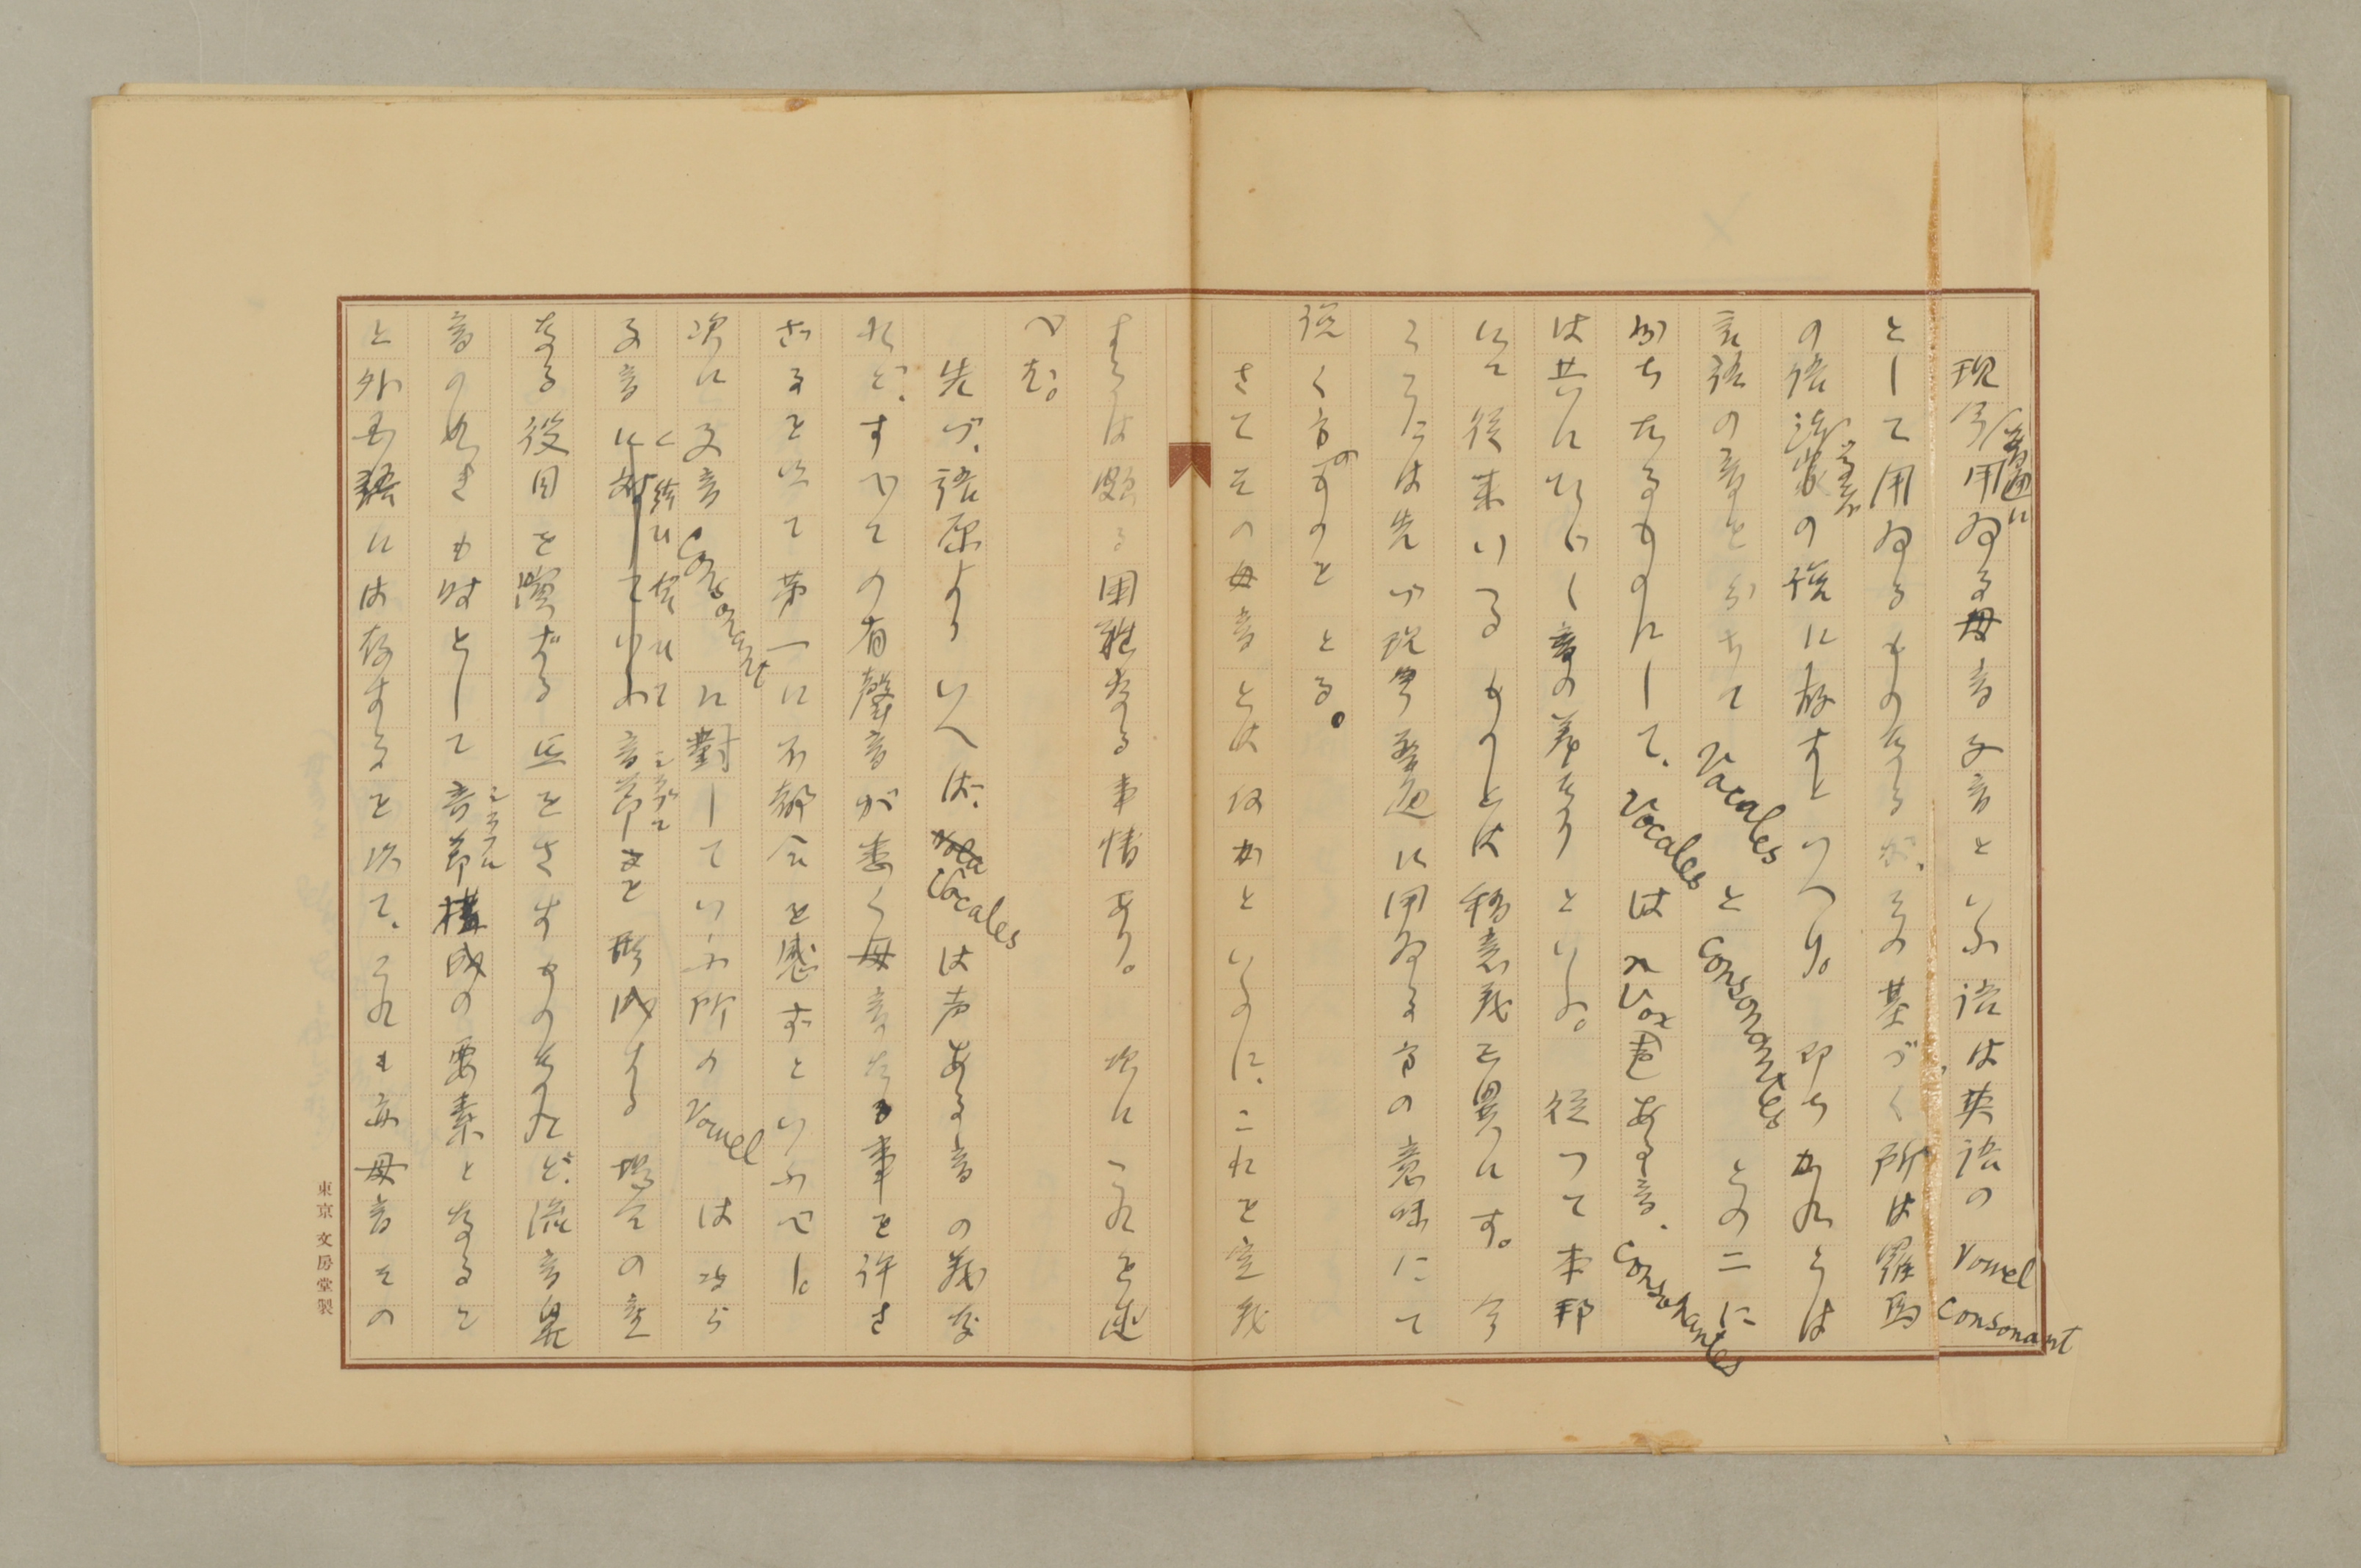 現今普通に用ゐる母音子音といふ語は英語の Vowel Consonant
として用ゐるものなるが、その基づく所は羅馬
の語法家の説に存すといへり。即ちかれらは
言語の音を分ちて Vocales と Consonantes との二に
分ちたるものにして、Vocales は Vox ある音、Consonantes
は共にひゞく音の義なりといふ。従つて本邦
にて従来いへるものとは稍意義を異にす。今
こゝには先づ現今普通に用ゐる方の意味にて
説く方のものをとる。
さてその母音とは何かといふのに、これを定義
するは頗る困難なる事情あり。次にこれを述
べむ。
先づ、語原よりいへば、Vocales は声ある音の義な
れど、すべての有聲音が悉く母音なる事を許さ
ざるを以て第一に不都合を感ずといふべし。
次に子音 Consonant に對していふ所の Vowel は必ら
子音と結び合ひてシラブル音節を形成する場合の主
なる役目を演ずる正をさすものなれど、流音鼻
音の如きも時として音節シラブル構成の要素となること
と外国語には存するを以て、これも亦母音その
東京 文房堂製